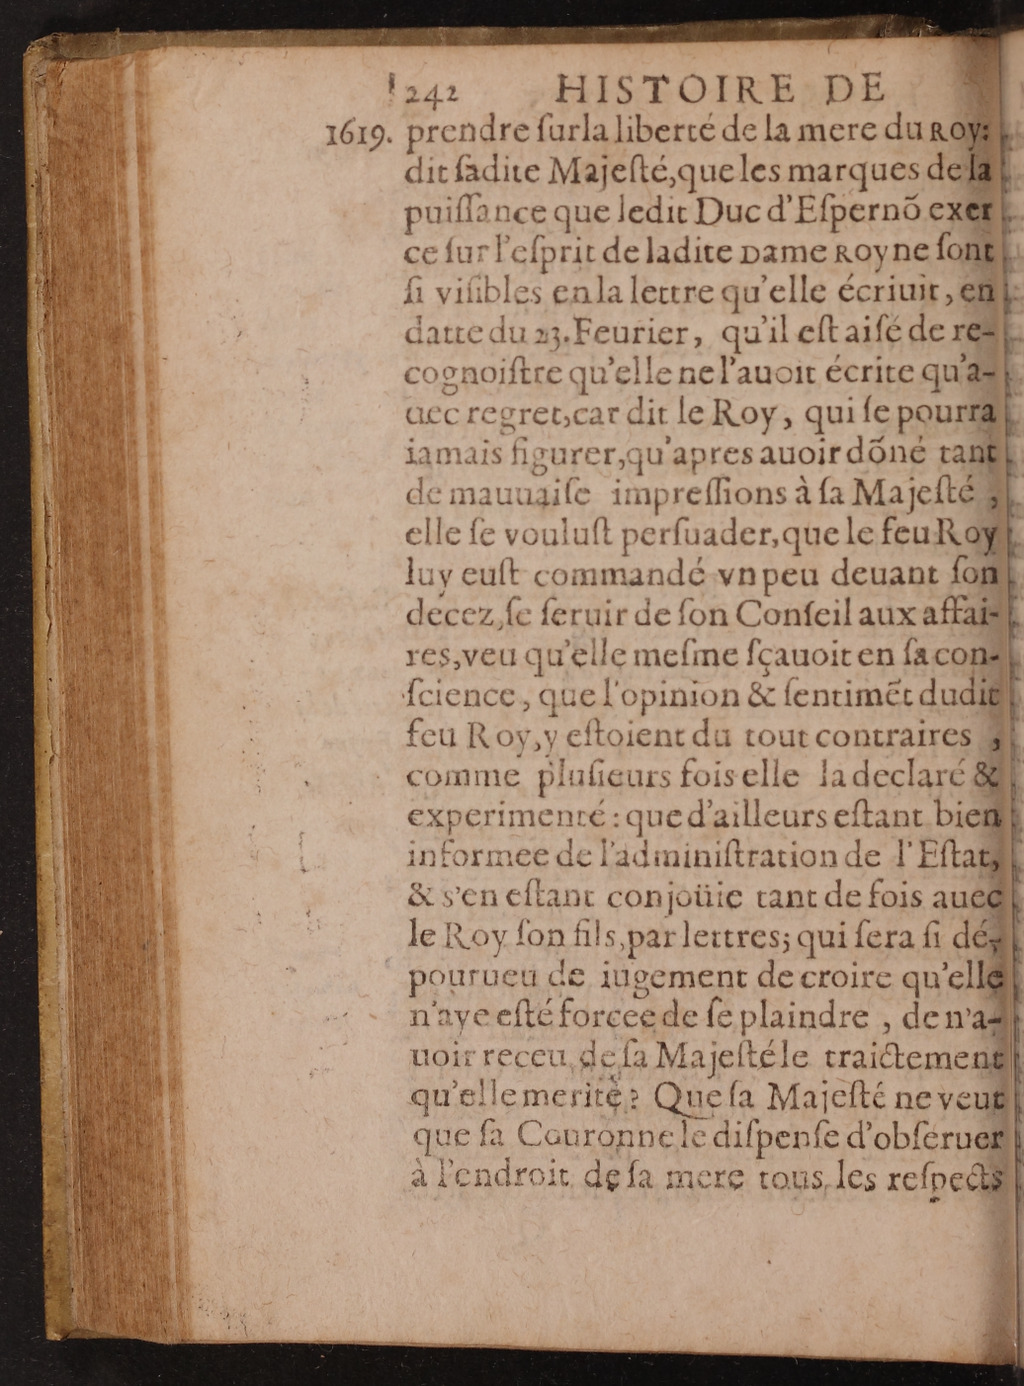 242 HISTOIRE DE
1619. prendre ſur la liberté de la mere du Roy:
dit ſadite Majeſté, que les marques de la
puiſſance que ledit Duc d'Eſpernõ exer
ce ſur l'eſprit de ladite Dame Royne ſont
ſi viſibles en la lettre qu'elle écriuit, en
datte du 23. Feurier, qu'il eſt aiſé de re-
cognoiſtre qu'elle ne l'auoit écrite qu'a-
uec regret, car dit le Roy, qui ſe pourra
iamais figurer, qu'apres auoir dõné tant
de mauuaiſe impreſſions à ſa Majeſté,
elle ſe vouluſt perſuader, que le feu Roy
luy euſt commandé vn peu deuant ſon
decez, ſe ſeruir de ſon Conſeil aux affai-
res, veu qu'elle meſme ſçauoit en ſa con-
ſcience, que l'opinion & ſentimẽt dudit
feu Roy, y eſtoient du tout contraires,
comme pluſieurs fois elle la declaré &
experimenté: que d'ailleurs eſtant bien
informee de l'adminiſtration de l'Eſtat,
& s'en eſtant conjoüie tant de fois auec
le Roy ſon fils, par lettres; qui ſera ſi dé-
pourueu de iugement de croire qu'elle
n'aye eſté forcee de ſe plaindre, de n'a-
uoir receu de ſa Majeſté le traictement
qu'elle merite? Que ſa Majeſté ne veut
que ſa Couronne le diſpenſe d'obſeruer
à l'endroit de ſa mere tous les reſpects